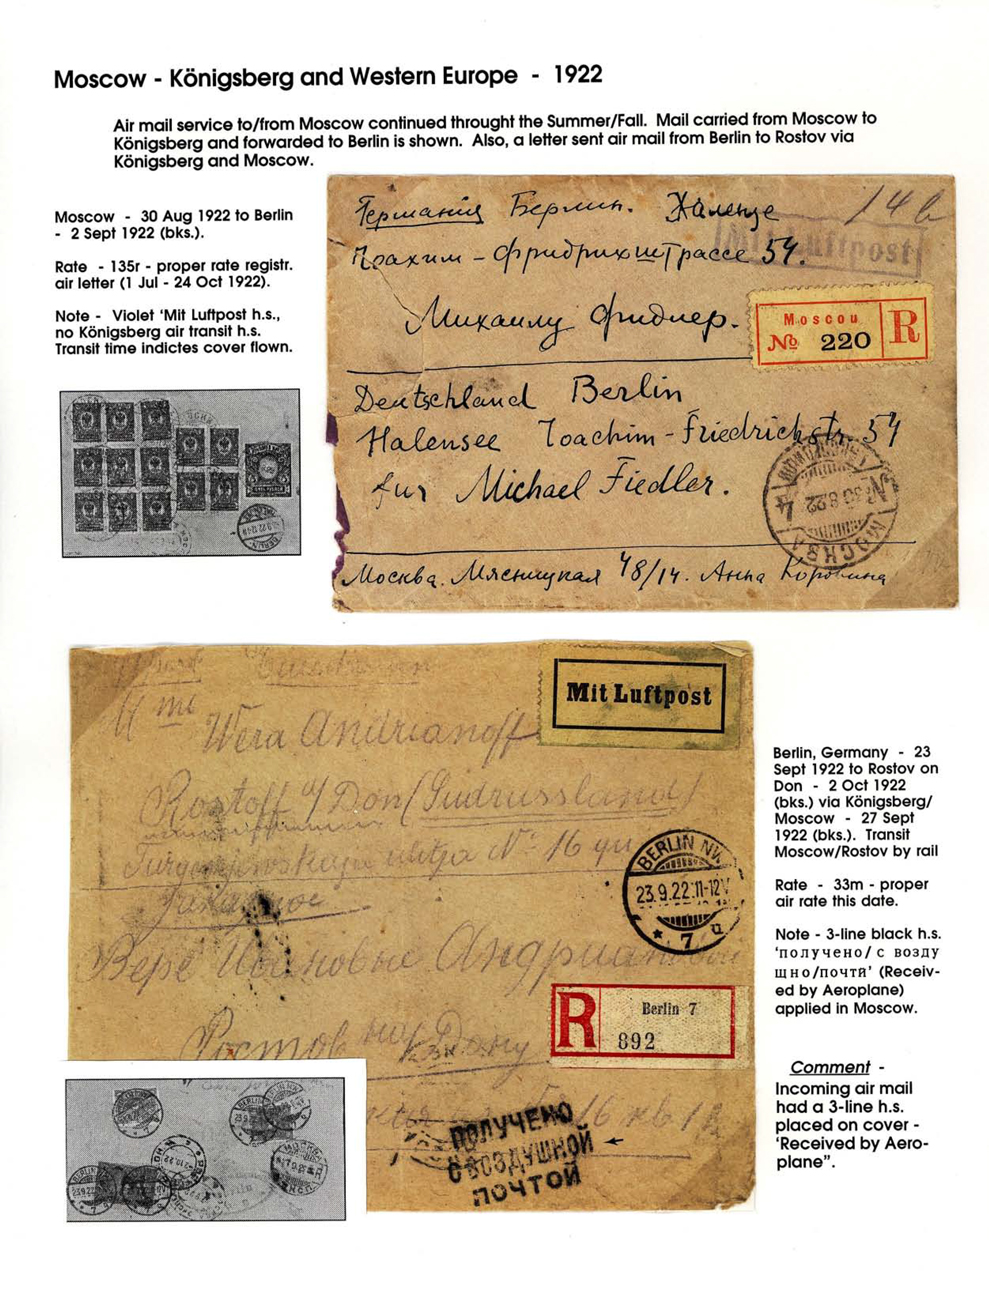 Moscow - Königsberg and Western Europe - 1922
Air mail service to/from Moscow continued throught the Summer/Fall. Mail carried from Moscow to
Königsberg and forwarded to Berlin is shown. Also, a letter sent air mail from Berlin to Rostov via
Königsberg and Moscow.
Moscow - 30 Aug 1922 to Berlin
- 2 Sept 1922 (bks.).
Rate - 135r - proper rate registr.
air letter (1 Jul - 24 Oct 1922).
Note - Violet 'Mit Luftpost h.s.,
no Königsberg air transit h.s.
Transit time indictes cover flown.
Германия Берлин. Халензе
14
Mit Luftpost
Иоахим - Фридрихштрассе 54.
Михаилу Фидлер.
Moscou
№ 220
R
Deutschland Berlin
Halensee Joachim - Friedrichstr. 54
für Michael Fiedler.
30 8.22
МОСКВА
Москва. Мясницкая 48/14. Анна Коровина
Mit Luftpost
Mme
Wera Andrianoff
Rostoff a/Don (Südrussland)
ulitza № 16
Заказное
Вере
Ростов на Дону
16 кв 1
BERLIN NW
23.9.22.11-12V
* 7 u
R
Berlin 7
892
ПОЛУЧЕНО
С ВОЗДУШНОЙ
ПОЧТОЙ
Berlin, Germany - 23
Sept 1922 to Rostov on
Don - 2 Oct 1922
(bks.) via Königsberg/
Moscow - 27 Sept
1922 (bks.). Transit
Moscow/Rostov by rail
Rate - 33m - proper
air rate this date.
Note - 3-line black h.s.
'получено/с возду
шно/почтй' (Receiv-
ed by Aeroplane)
applied in Moscow.
Comment -
Incoming air mail
had a 3-line h.s.
placed on cover -
'Received by Aero-
plane".